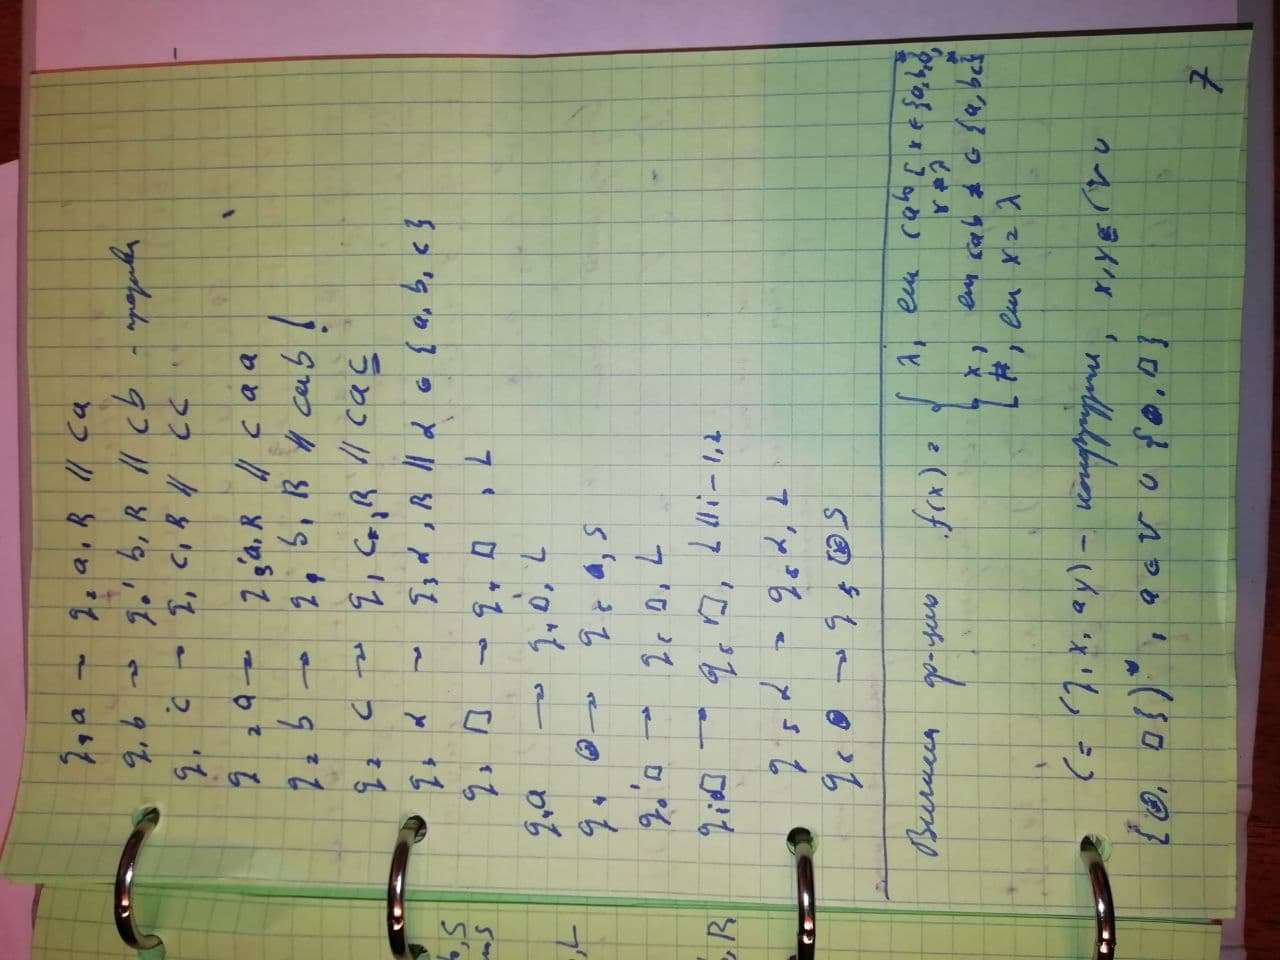 q₁a → q₂ a, R // ca
q₁b → q₀' b, R // cb -
q₁ c → q₁ c, R // cc
q₂a → q₃'a, R // caa
q₂ b → q, b, R // cab!
q₂ c → q₁ c, R // cac
q₃ α → q₃ α, R // α ∈ {a, b, c}
q₃ □ → q₄ □, L
q₄a → q₄ □, L
q₄ ⊛ → q₅ , S
q₀'□ → q₅ □, L
qᵢ□ → q₅ □, L // i - 1,2
q₅ α → q₅ α, L
q₅ ⊛ → q₅ ⊛ S
ф-цию f(x) =
λ, если cab ⊑ x ∈ {a,b,c}*,
x ≠ λ
x, если cab ∈ {a, b c}*
#, если x = λ
C = (q, x, ay) – , x, y ∈ (V ∪
{⊛, □})*, a ∈ V ∪ {⊛, □}
7
b, S
, L
, R